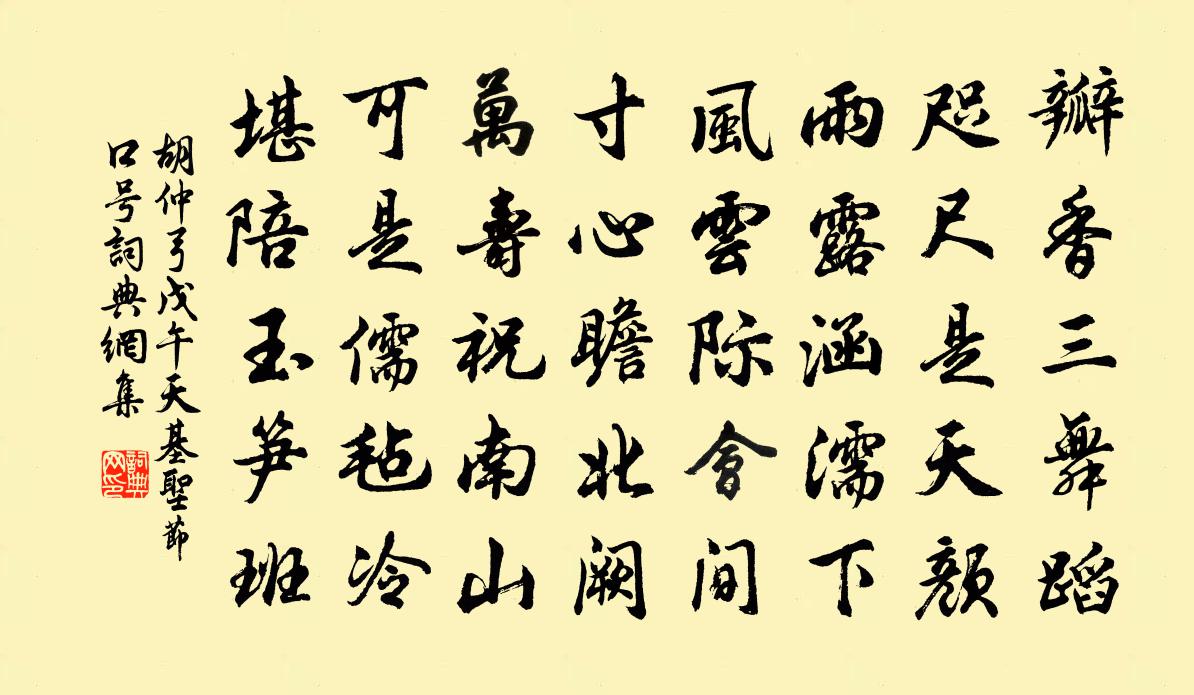 瓣香三舞蹈
咫尺是天顏
雨露涵濡下
風雲際會間
寸心瞻北闕
萬壽祝南山
可是儒毡冷
堪陪玉笋班
胡仲弓戊午天基聖節
口号詞典網集
詞典网印